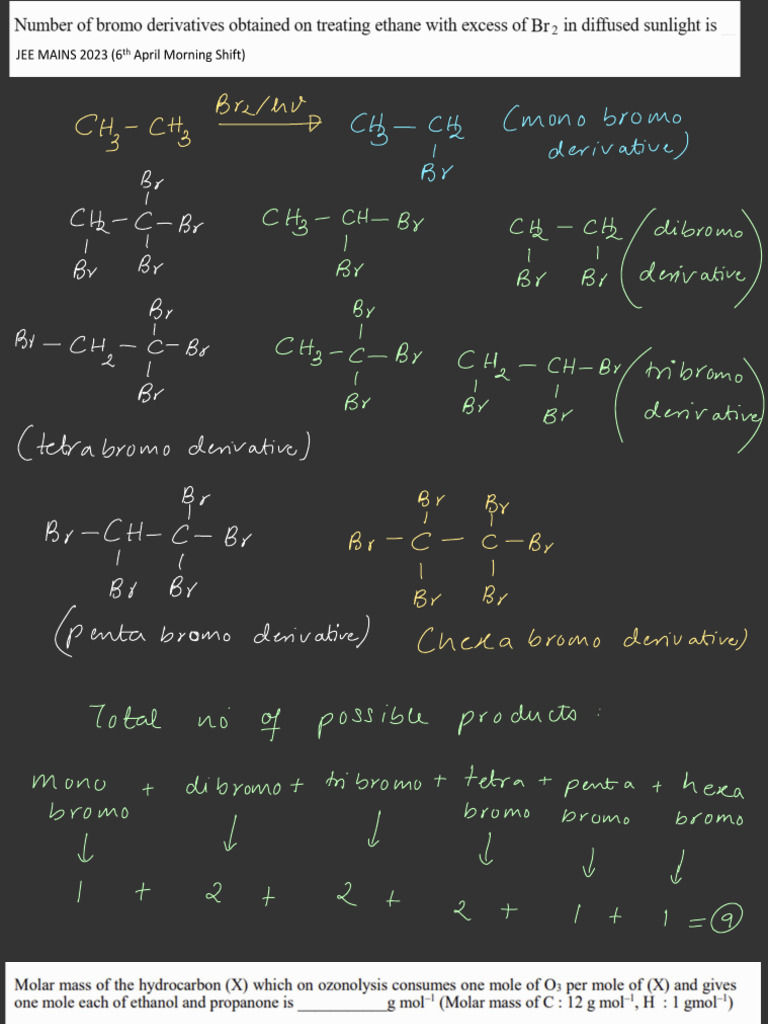 Number of bromo derivatives obtained on treating ethane with excess of Br₂ in diffused sunlight is
JEE MAINS 2023 (6th April Morning Shift)
CH₃ — CH₃ Br₂/hν → CH₃ — CH₂ (mono bromo
| derivative)
Br
Br
|
CH₂ — C — Br CH₃ — CH — Br CH₂ — CH₂ (dibromo
| | | | | derivative)
Br Br Br Br Br
Br Br
| |
Br — CH₂ — C — Br CH₃ — C — Br CH₂ — CH — Br (tribromo
| | | | derivative)
Br Br Br Br
(tetra bromo derivative)
Br Br Br
| | |
Br — CH — C — Br Br — C — C — Br
| | | |
Br Br Br Br
(penta bromo derivative) (hexa bromo derivative)
Total no of possible products :
mono + dibromo + tribromo + tetra + penta + hexa
bromo bromo bromo bromo
↓ ↓ ↓ ↓ ↓ ↓
1 + 2 + 2 + 2 + 1 + 1 = 9
Molar mass of the hydrocarbon (X) which on ozonolysis consumes one mole of O₃ per mole of (X) and gives
one mole each of ethanol and propanone is __________g mol⁻¹ (Molar mass of C : 12 g mol⁻¹, H : 1 gmol⁻¹)